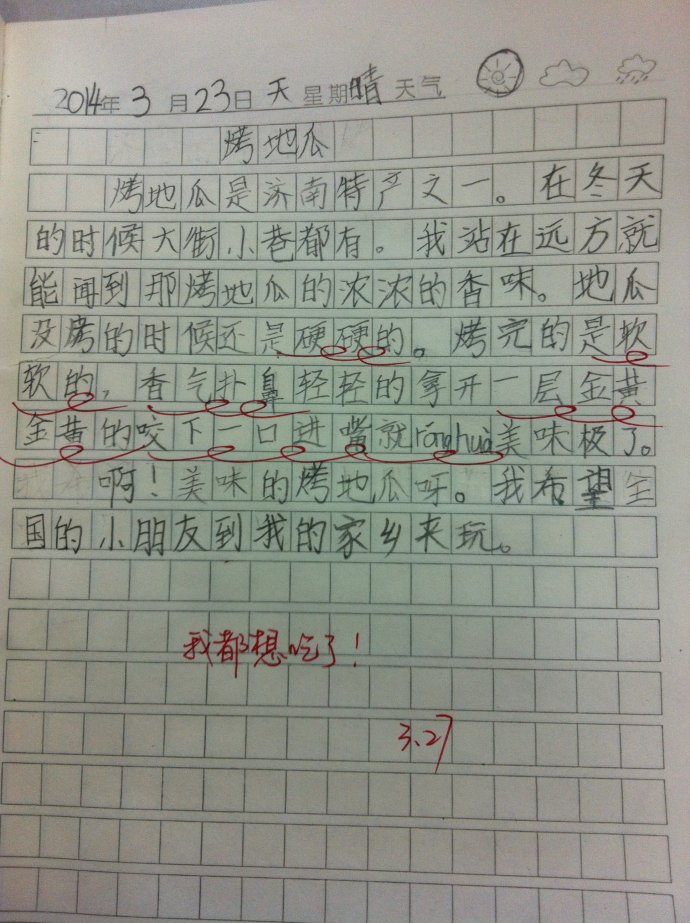 2014年 3月23日 天 星期 晴 天气
烤地瓜
烤地瓜是济南特产之一。在冬天
的时候大街小巷都有。我站在远方就
能闻到那烤地瓜的浓浓的香味。地瓜
没烤的时候还是硬硬的。烤完的是软
软的,香气扑鼻轻轻的拿开一层金黄
金黄的咬下一口进嘴就rónghuà美味极了。
啊!美味的烤地瓜呀。我希望全
国的小朋友到我的家乡来玩。
我都想吃了!
3.27